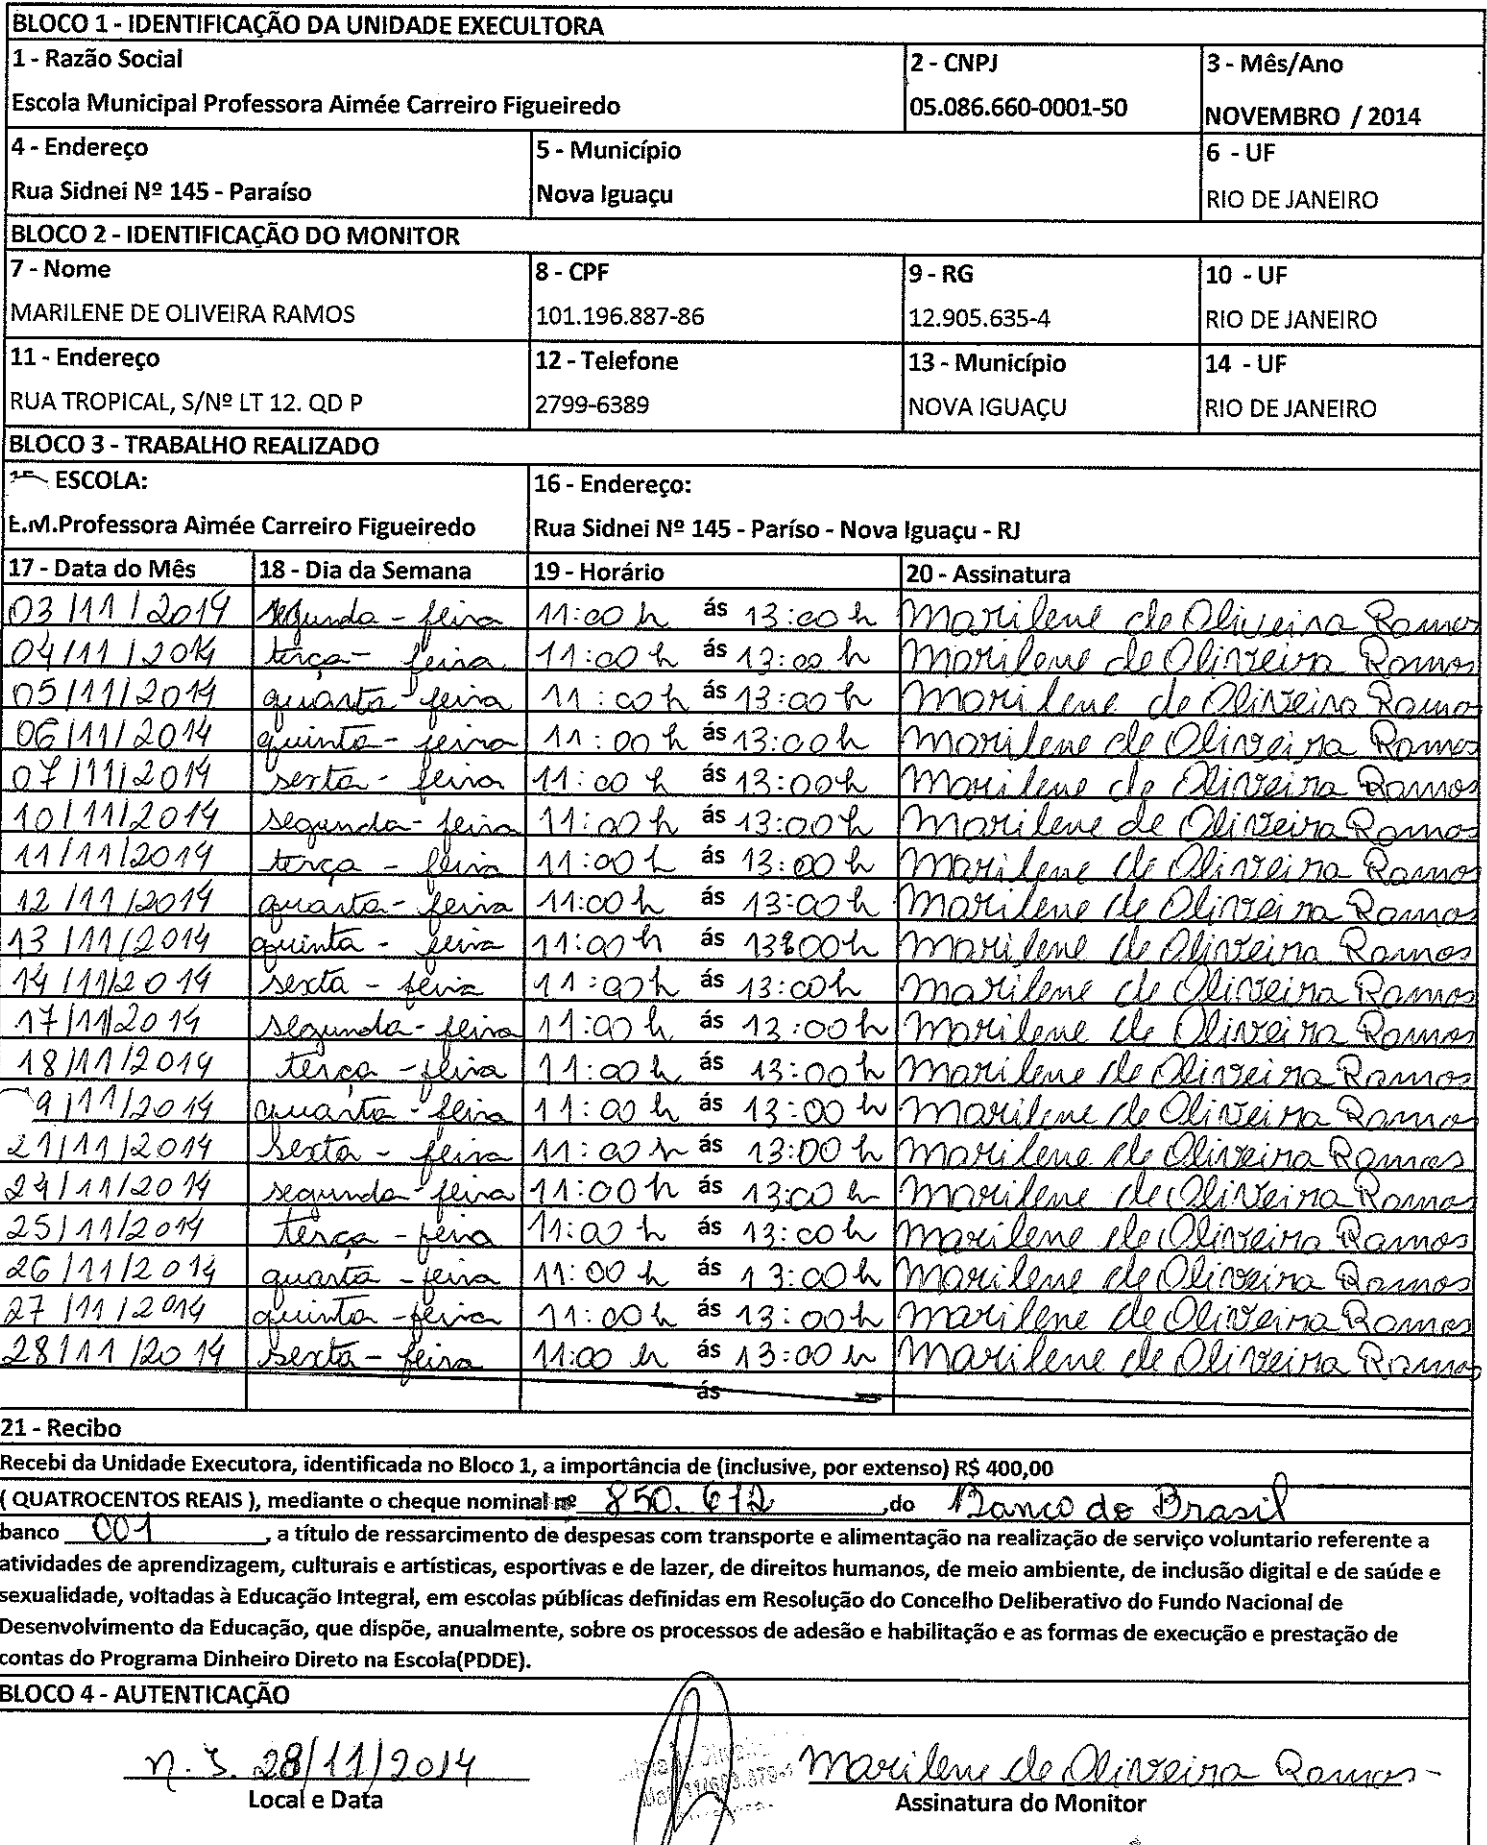 BLOCO 1 - IDENTIFICAÇÃO DA UNIDADE EXECULTORA
1 - Razão Social 2 - CNPJ 3 - Mês/Ano
Escola Municipal Professora Aimée Carreiro Figueiredo 05.086.660-0001-50 NOVEMBRO / 2014
4 - Endereço 5 - Município 6 - UF
Rua Sidnei Nº 145 - Paraíso Nova Iguaçu RIO DE JANEIRO
BLOCO 2 - IDENTIFICAÇÃO DO MONITOR
7 - Nome 8 - CPF 9 - RG 10 - UF
MARILENE DE OLIVEIRA RAMOS 101.196.887-86 12.905.635-4 RIO DE JANEIRO
11 - Endereço 12 - Telefone 13 - Município 14 - UF
RUA TROPICAL, S/Nº LT 12. QD P 2799-6389 NOVA IGUAÇU RIO DE JANEIRO
BLOCO 3 - TRABALHO REALIZADO
ESCOLA: 16 - Endereço:
E.M.Professora Aimée Carreiro Figueiredo Rua Sidnei Nº 145 - Paríso - Nova Iguaçu - RJ
17 - Data do Mês 18 - Dia da Semana 19 - Horário 20 - Assinatura
03/11/2014 segunda-feira 11:00 h ás 13:00 h Marilene de Oliveira Ramos
04/11/2014 terça-feira 11:00 h ás 13:00 h Marilene de Oliveira Ramos
05/11/2014 quarta-feira 11:00 h ás 13:00 h Marilene de Oliveira Ramos
06/11/2014 quinta-feira 11:00 h ás 13:00 h Marilene de Oliveira Ramos
07/11/2014 sexta-feira 11:00 h ás 13:00 h Marilene de Oliveira Ramos
10/11/2014 segunda-feira 11:00 h ás 13:00 h Marilene de Oliveira Ramos
11/11/2014 terça-feira 11:00 h ás 13:00 h Marilene de Oliveira Ramos
12/11/2014 quarta-feira 11:00 h ás 13:00 h Marilene de Oliveira Ramos
13/11/2014 quinta-feira 11:00 h ás 13:00 h Marilene de Oliveira Ramos
14/11/2014 sexta-feira 11:00 h ás 13:00 h Marilene de Oliveira Ramos
17/11/2014 segunda-feira 11:00 h ás 13:00 h Marilene de Oliveira Ramos
18/11/2014 terça-feira 11:00 h ás 13:00 h Marilene de Oliveira Ramos
9/11/2014 quarta-feira 11:00 h ás 13:00 h Marilene de Oliveira Ramos
21/11/2014 sexta-feira 11:00 h ás 13:00 h Marilene de Oliveira Ramos
24/11/2014 segunda-feira 11:00 h ás 13:00 h Marilene de Oliveira Ramos
25/11/2014 terça-feira 11:00 h ás 13:00 h Marilene de Oliveira Ramos
26/11/2014 quarta-feira 11:00 h ás 13:00 h Marilene de Oliveira Ramos
27/11/2014 quinta-feira 11:00 h ás 13:00 h Marilene de Oliveira Ramos
28/11/2014 sexta-feira 11:00 h ás 13:00 h Marilene de Oliveira Ramos
ás
21 - Recibo
Recebi da Unidade Executora, identificada no Bloco 1, a importância de (inclusive, por extenso) R$ 400,00
( QUATROCENTOS REAIS ), mediante o cheque nominal nº 850.672 ,do Banco do Brasil
banco 001 , a título de ressarcimento de despesas com transporte e alimentação na realização de serviço voluntario referente a
atividades de aprendizagem, culturais e artísticas, esportivas e de lazer, de direitos humanos, de meio ambiente, de inclusão digital e de saúde e
sexualidade, voltadas à Educação Integral, em escolas públicas definidas em Resolução do Concelho Deliberativo do Fundo Nacional de
Desenvolvimento da Educação, que dispõe, anualmente, sobre os processos de adesão e habilitação e as formas de execução e prestação de
contas do Programa Dinheiro Direto na Escola(PDDE).
BLOCO 4 - AUTENTICAÇÃO
n. I. 28/11/2014 Marilene de Oliveira Ramos
Local e Data Assinatura do Monitor